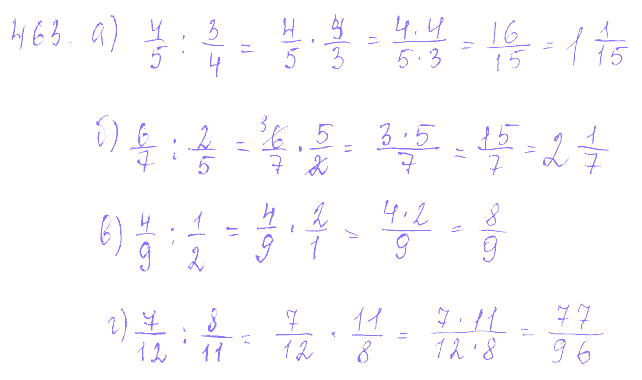 463. а) 4/5 : 3/4 = 4/5 · 4/3 = 4·4/5·3 = 16/15 = 1 1/15
б) 6/7 : 2/5 = ³6/7 · 5/2 = 3·5/7 = 15/7 = 2 1/7
в) 4/9 : 1/2 = 4/9 · 2/1 = 4·2/9 = 8/9
г) 7/12 : 8/11 = 7/12 · 11/8 = 7·11/12·8 = 77/96